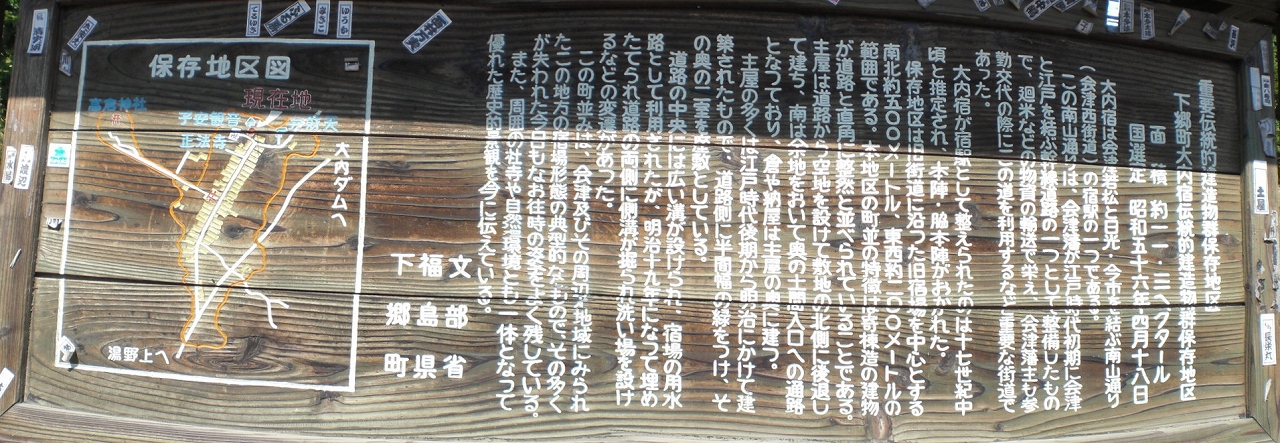 重要伝統的建造物群保存地区
下郷町大内宿伝統的建造物群保存地区
面積 約一一・三ヘクタール
国選定 昭和五十六年四月十八日
大内宿は会津若松と日光・今市を結ぶ南山通り
(会津西街道)の宿駅の一つである。
この南山通りは、会津藩が江戸時代初期に会津
と江戸を結ぶ幹線道路の一つとして整備したもの
で、廻米などの物資の輸送で栄え、会津藩主も参
勤交代の際にこの道を利用するなど重要な街道で
あった。
大内宿が宿駅として整えられたのは十七世紀中
頃と推定され、本陣・脇本陣がおかれた。
保存地区は旧街道に沿った旧宿場を中心とする
南北約五〇〇メートル、東西約二〇〇メートルの
範囲である。本地区の町並の特徴は寄棟造の建物
が道路と直角に整然と並べられていることである。
主屋は道路から空地を設けて敷地の北側に後退し
て建ち、南は余地をおいて奥の土間入口への通路
となっており、倉や納屋は主屋の奥に建つ。
主屋の多くは江戸時代後期から明治にかけて建
築されたもので、道路側に半間幅の縁をつけ、そ
の奥の二室を座敷としている。
道路の中央には広い溝が設けられ、宿場の用水
路として利用されたが、明治十九年になって埋め
たてられ道路の両側に側溝が掘られ洗い場を設け
るなどの変遷があった。
この町並みは、会津及びその周辺地域にみられ
たこの地方の宿場形態の典型的なもので、その多く
が失われた今日もなお往時の姿をよく残している。
また、周囲の社寺や自然環境とも一体となって
優れた歴史的景観を今に伝えている。
文部省
福島県
下郷町
保存地区図
現在地
高倉神社
子安観音
正法寺
大内ダムへ
湯野上へ